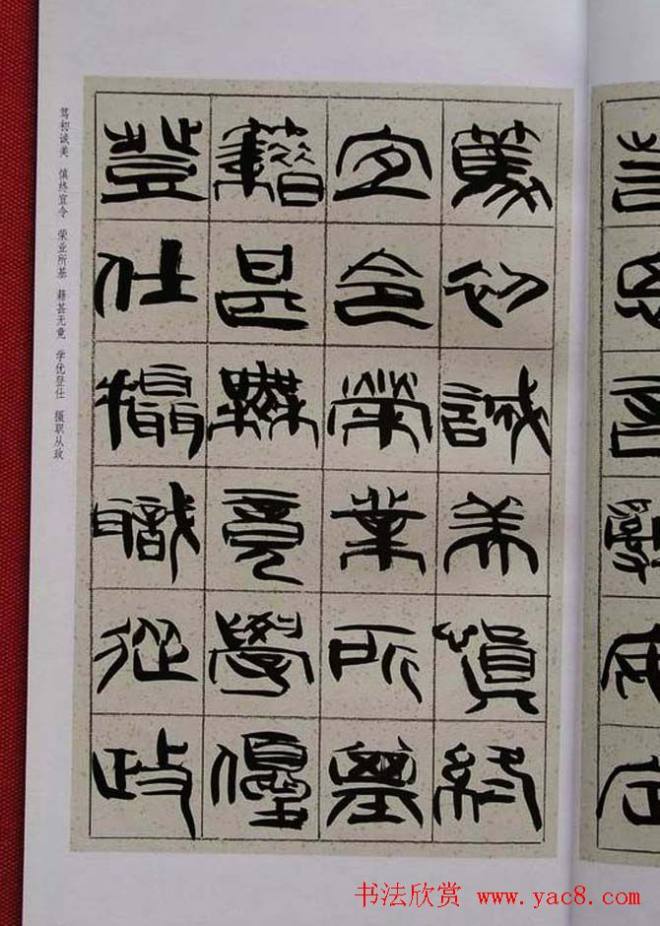 篤初誠美慎終
宜令榮業所基
籍甚無竟學優
登仕攝職從政
笃初诚美 慎终宜令 荣业所基 籍甚无竟 学优登仕 摄职从政
书法欣赏 www.yac8.com